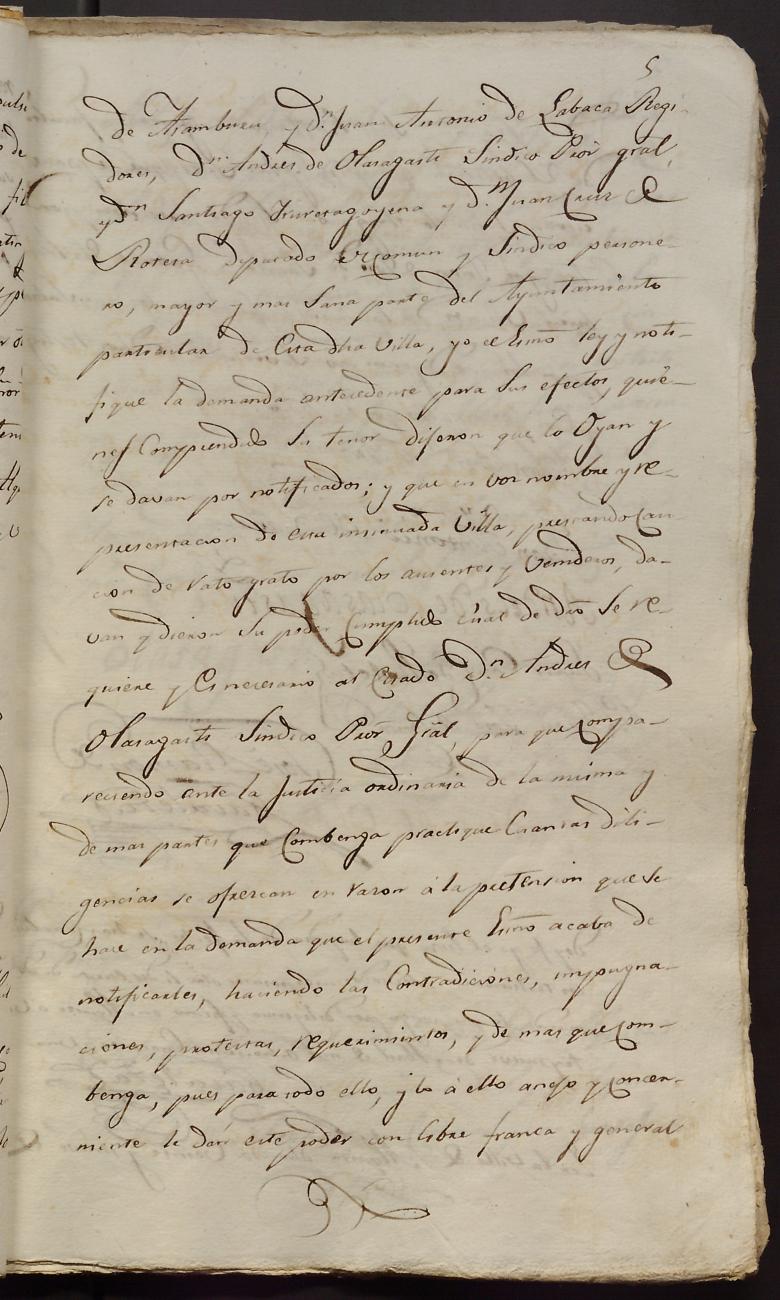 5
de Aramburu, y Dn. Juan Antonio de Labaca Regi-
dores, Dn. Andres de Olasagasti Sindico Pror gral,
y Dn Santiago Yturrtagoyena y Dn. Juan Cruz de
Rotera diputado del comun y Sindico persone-
ro, mayor y mas Sana parte del Ayuntamiento
particular de Esta dha Villa, yo el Esno ley y noti-
fique la demanda antecedente para Sus efectos, quie-
nes Comprendido Su tenor dijeron que lo Oyan y
se davan por notificados; y que en voz nombre y re-
presentacion de esta insinuada Villa, prestando Cau
cion de rato grato por los ausentes y Venideros, da-
van y dieron Su poder Cumplido cual de dro Se re-
quiere y Es necesario al Citado Dn. Andres de
Olasagasti Sindico Pror Gral, para que compa-
reciendo ante la Justicia ordinaria de la misma y
de mas partes que Combenga practique Cuantas dili-
gencias se ofrezcan en razon á la pretension que se
hace en la demanda que el presente Esno acaba de
notificarles, haciendo las Contradiciones, impugna-
ciones, protestas, requerimientos, y de mas que com-
benga, pues para todo ello, y lo á ello anejo y concer-
niente le dan este poder con libre franca y general